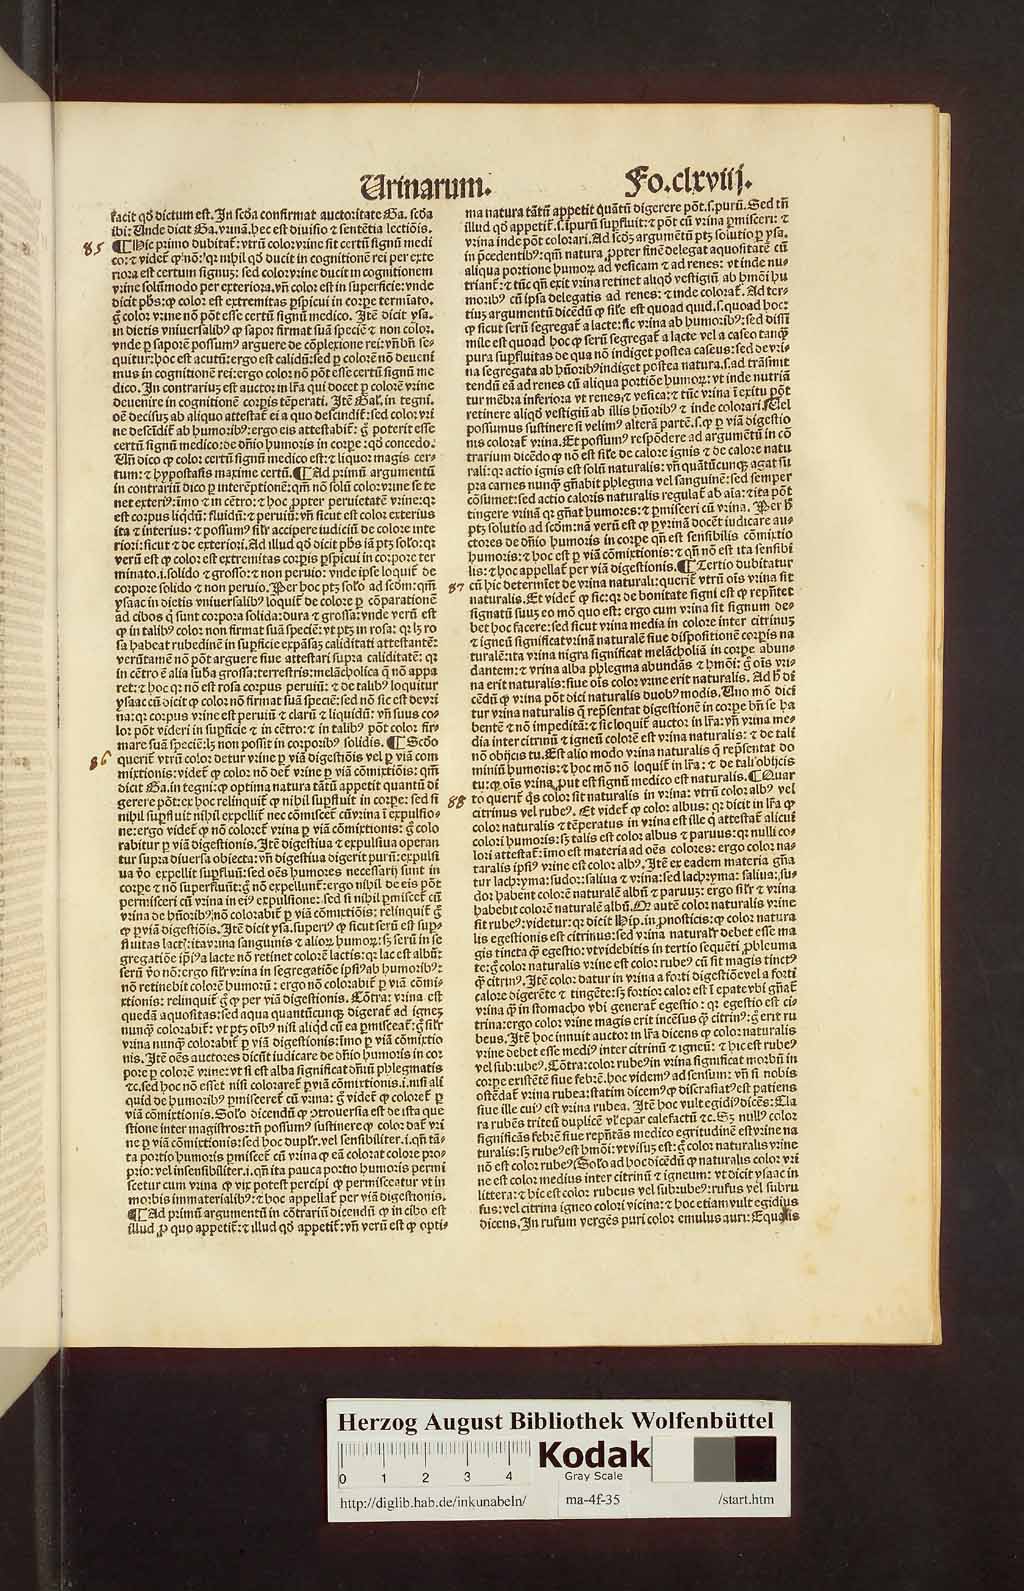 Urinarum. Fo.clxviij.
facit qd̄ dictum est. In scd̄a confirmat auctoritate Ga. scd̄a
ibi: Unde dicit Ga. vrinā. hec est diuisio ⁊ sentētia lectiōis.
85 ¶ Hic primo dubitat᷑: vtrū color vrine sit certū signū medi
co: ⁊ videt᷑ ꝙ nō: qꝛ nihil qd̄ ducit in cognitionē rei per exte
riora est certum signuꝫ: sed color vrine ducit in cognitionem
vrine solūmodo per exteriora, vn̄ color est in superficie: vnde
dicit pħs: ꝙ color est extremitas ꝑspicui in corꝑe termīato.
g̊ color vrine nō pōt esse certū signū medico. Itē dicit ysa.
in dietis vniuersalibꝰ ꝙ sapor firmat suā speciē ⁊ non color.
vnde ꝑ saporē possumꝰ arguere de cōplexione rei: vn̄ bn̄ se-
quitur: hoc est acutū: ergo est calidū: sed ꝑ colorē nō deueni
mus in cognitionē rei: ergo color nō pōt esse certū signū me
dico. In contrariuꝫ est auctor in lr̄a qui docet ꝑ colorē vrine
deuenire in cognitionē corꝑis tēperati. Itē Gal. in tegni.
oē decisuꝫ ab aliquo attestat᷑ ei a quo descindit᷑: sed color vri
ne descīdit᷑ ab humoribꝰ: ergo eis attestabit᷑: g̊ poterit esse
certū signū medico: de dn̄io humoris in corꝑe: qd̄ concedo.
Un̄ dico ꝙ color certū signū medico est: ⁊ liquor magis cer-
tum: ⁊ hypostasis maxime certū. ¶ Ad primū argumentū
in contrariū dico ꝑ interēptionē: qm̄ nō solū color vrine se te
net exteriꝰ: īmo ⁊ in cētro: ⁊ hoc ꝓpter peruietatē vrine: qꝛ
est corpus liqdū: fluidū: ⁊ peruiū: vn̄ sicut est color exterius
ita ⁊ interius: ⁊ possumꝰ silr̄ accipere iudiciū de colore inte
riori: sicut ⁊ de exteriori. Ad illud qd̄ dicit pħs iā ptꝫ solo: qꝛ
verū est ꝙ color est extremitas corꝑis ꝑspicui in corpore ter
minato. i. solido ⁊ grosso: ⁊ non peruio: vnde ipse loquit᷑ de
corpore solido ⁊ non peruio. Per hoc ptꝫ solo ad scd̄m: qm̄
ysaac in dietis vniuersalibꝰ loquit᷑ de colore ꝑ cōparationē
ad cibos q̄ sunt corpora solida: dura ⁊ grossa: vnde verū est
ꝙ in talibꝰ color non firmat suā speciē: vt ptꝫ in rosa: qꝛ lꝫ ro
sa habeat rubedinē in suꝑficie expāsaꝫ caliditati attestantē:
verūtamē nō pōt arguere siue attestari supra caliditatē: qꝛ
in cētro ē alia suba grossa: terrestris: melācholica q̄ nō appa
ret: ⁊ hoc qꝛ nō est rosa corpus peruiū: ⁊ de talibꝰ loquitur
ysaac cū dicit ꝙ color nō firmat suā speciē: sed nō sic est de vri
na: qꝛ corpus vrine est peruiū ⁊ clarū ⁊ liquidū: vn̄ suus co-
lor pōt videri in suꝑficie ⁊ in cētro: ⁊ in talibꝰ pōt color fir-
mare suā speciē: lꝫ non possit in corporibꝰ solidis. ¶ Scd̄o
86 querit᷑ vtrū color detur vrine ꝑ viā digestiōis vel ꝑ viā com
mixtionis: videt᷑ ꝙ color nō det᷑ vrine ꝑ viā cōmixtiōis: qm̄
dicit Ga. in tegni: ꝙ optima natura tātū appetit quantū di
gerere pōt: ex hoc relinquit᷑ ꝙ nihil suꝑfluit in corpe: sed si
nihil suꝑfluit nihil expellit᷑ nec cōmiscet᷑ cū vrina ī expulsio-
ne: ergo videt᷑ ꝙ nō coloret᷑ vrina ꝑ viā cōmixtionis: g̊ colo
rabitur ꝑ viā digestionis. Itē digestiua ⁊ expulsiua operan
tur supra diuersa obiecta: vn̄ digestiua digerit purū: expulsi
ua vo expellit suꝑfluū: sed oēs humores necessarij sunt in
corꝑe ⁊ nō suꝑfluūt: g̊ nō expellunt᷑: ergo nihil de eis pōt
permisceri cū vrina in eiꝰ expulsione: sed si nihil ꝑmiscet᷑ cū
vrina de hūoribꝰ: nō colorabit᷑ ꝑ viā cōmixtiōis: relinquit᷑ g̊
ꝙ ꝑ viā digestiōis. Itē dicit ysa. superiꝰ ꝙ sicut serū est suꝑ-
fluitas lactꝭ: ita vrina sanguinis ⁊ alioꝝ humoꝝ: sꝫ serū in se
gregatiōe ipiꝰ a lacte nō retinet colorē lactis: qꝛ lac est albū:
serū vo nō: ergo silr̄ vrina in segregatiōe ipsiꝰ ab humoribꝰ:
nō retinebit colorē humorū: ergo nō colorabit᷑ ꝑ viā cōmi-
xtionis: relinquit᷑ g̊ ꝙ per viā digestionis. Cōtra: vrina est
quedā aquositas: sed aqua quantūcunqꝫ digerat᷑ ad ignez
nunqꝫ colorabit᷑: vt ptꝫ oībꝰ nisi aliqd cū ea ꝑmisceat᷑: g̊ silr̄
vrina nunqꝫ colorabit᷑ ꝑ viā digestionis: īmo ꝑ viā cōmixtio
nis. Itē oēs auctores dicūt iudicare de dn̄io humoris in cor
pore ꝑ colorē vrine: vt si est alba significat dn̄iū phlegmatis
⁊c. sed hoc nō esset nisi coloraret᷑ ꝑ viā cōmixtionis. i. nisi ali
quid de humoribꝰ ꝑmisceret᷑ cū vrina: g̊ videt᷑ ꝙ coloret᷑ ꝑ
viā cōmixtionis. Solo dicendū ꝙ ↄtrouersia est de ista que
stione inter magistros: tn̄ possumꝰ sustinere ꝙ color dat᷑ vri
ne ꝑ viā cōmixtionis: sed hoc duplr̄. vel sensibiliter. i. qn̄ tā-
ta portio humoris ꝑmiscet᷑ cū vrina ꝙ eā colorat colore pro-
prio: vel insensibiliter. i. qn̄ ita pauca portio humoris permi
scetur cum vrina ꝙ vix potest percipi ꝙ permisceatur vt in
morbis immaterialibꝰ: ⁊ hoc appellat᷑ per viā digestionis.
¶ Ad primū argumentū in cōtrariū dicendū ꝙ in cibo est
illud ꝓ quo appetit᷑: ⁊ illud qd̄ appetit᷑: vn̄ verū est ꝙ opti-
ma natura tātū appetit quātū digerere pōt. s. purū. Sed tn̄
illud qd̄ appetit᷑. s. ipurū suꝑfluit: ⁊ pōt cū vrina ꝑmisceri: ⁊
vrina inde pōt colorari. Ad scd̄ꝫ argumētū ptꝫ solutio ꝑ ysa.
in p̄cedentibꝰ: qm̄ natura ꝓpter finē delegat aquositatē cū
aliqua portione humoꝝ ad vesicam ⁊ ad renes: vt inde nu-
triant᷑: ⁊ tūc qn̄ exit vrina retinet aliqd̄ vestigiū ab hm̄oi hu
moribꝰ cū ipsa delegatis ad renes: ⁊ inde colorat᷑. Ad ter-
tiuꝫ argumentū dicēdū ꝙ sile est quoad quid. s. quoad hoc:
ꝙ sicut serū segregat᷑ a lacte: sic vrina ab humoribꝰ: sed dissi
mile est quoad hoc ꝙ serū segregat᷑ a lacte vel a caseo tanqꝫ
pura suꝑfluitas de qua nō indiget postea caseus: sed de vri-
na segregata ab hūoribꝰ indiget postea natura. s. ad trāsmit
tendū eā ad renes cū aliqua portiōe humoꝝ: vt inde nutriā
tur mēbra inferiora vt renes, ⁊ vesica: ⁊ tūc vrina ī exitu pōt
retinere aliqd̄ vestigiū ab illis hūoribꝰ ⁊ inde colorari. Vel
possumus sustinere si velimꝰ alterā partē. s. ꝙ ꝑ viā digestio
nis colorat᷑ vrina. Et possumꝰ respōdere ad argumētū in cō
trarium dicēdo ꝙ nō est sile de calore ignis ⁊ de calore natu
rali: qꝛ actio ignis est solū naturalis: vn̄ quātūcunqꝫ agat su
pra carnes nunqꝫ gn̄abit phlegma vel sanguinē: sed semper
cōsumet: sed actio caloris naturalis regulat᷑ ab aīa: ⁊ ita pōt
tingere vrinā qꝛ gn̄at humores: ⁊ ꝑmisceri cū vrina. Per h̄
ptꝫ solutio ad scd̄m: nā verū est ꝙ ꝑ vrinā docēt iudicare au-
ctores de dn̄io humoris in corpe qn̄ est sensibilis cōmixtio
humoris: ⁊ hoc est ꝑ viā cōmixtionis: ⁊ qn̄ nō est ita sensibi
lis: ⁊ hoc appellat᷑ per viā digestionis. ¶ Tertio dubitatur
87 cū hic determīet de vrina naturali: querit᷑ vtrū oīs vrina sit
naturalis. Et videt᷑ ꝙ sic: qꝛ de bonitate signi est ꝙ repn̄tet
signatū suuꝫ eo mō quo est: ergo cum vrina sit signum de-
bet hoc facere: sed sicut vrina media in colore inter citrinuꝫ
⁊ igneū significat vrinā naturalē siue dispositionē corꝑis na
turalē: ita vrina nigra significat melācholiā in corꝑe abun-
dantem: ⁊ vrina alba phlegma abundās ⁊ hm̄oi: g̊ oīs vri-
na erit naturalis: siue oīs color vrine erit naturalis. Ad h̄ di
cēdū ꝙ vrina pōt dici naturalis duobꝰ modis. Uno mō dici
tur vrina naturalis q̄ repn̄sentat digestionē in corꝑe bn̄ se ha
bentē ⁊ nō impeditā: ⁊ sic loquit᷑ auctor in lr̄a: vn̄ vrina me-
dia inter citrinū ⁊ igneū colorē est vrina naturalis: ⁊ de tali
nō obijcis tu. Est alio modo vrina naturalis q̄ repn̄sentat do
miniū humoris: ⁊ hoc mō nō loquit᷑ in lr̄a: ⁊ de tali obijcis
tu: ꝙ oīs vrina ꝓut est signū medico est naturalis. ¶ Quar
88 to querit᷑ qs̄ color sit naturalis in vrina: vtrū color albꝰ vel
citrinus vel rubeꝰ. Et videt᷑ ꝙ color albus: qꝛ dicit in lr̄a ꝙ
color naturalis ⁊ tēperatus in vrina est ille q̄ attestat᷑ alicui
colori humoris: sꝫ talis est color albus ⁊ paruus: qꝛ nulli co-
lori attestat᷑: īmo est materia ad oēs colores: ergo color na-
turalis ipsiꝰ vrine est color albꝰ. Itē ex eadem materia gn̄a
tur lachryma: sudor: saliua ⁊ vrina: sed lachryma: saliua: su-
dor habent colorē naturalē albū ⁊ paruuꝫ: ergo silr̄ ⁊ vrina
habebit colorē naturalē albū. Qꝛ autē color naturalis vrine
sit rubeꝰ: videtur: qꝛ dicit Hip. in ꝓnosticis: ꝙ color natura
lis egestionis est citrinus: sed vrina naturalr̄ debet esse ma
gis tincta qꝫ egestio: vt videbitis in tertio sequēti ꝓbleuma
te: g̊ color naturalis vrine est color rubeꝰ cū sit magis tinctꝰ
qꝫ citrinꝰ. Itē color datur in vrina a forti digestiōe vel a forti
calore digerēte ⁊ tingēte: sꝫ fortior calor est ī epate vbi gn̄at᷑
vrina qꝫ in stomacho vbi generat᷑ egestio: qꝛ egestio est ci-
trina: ergo color vrine magis erit incēsus qꝫ citrinꝰ: g̊ erit ru
beus. Itē hoc innuit auctor in lr̄a dicens ꝙ color naturalis
vrine debet esse mediꝰ inter citrinū ⁊ igneū: ⁊ hic est rubeꝰ
vel subrubeꝰ. Cōtra: color rubeꝰ in vrina significat morbū in
corꝑe existētē siue febrē. hoc videmꝰ ad sensum: vn̄ si nobis
ostēdat᷑ vrina rubea: statim dicemꝰ ꝙ discrasiatꝰ est patiens
siue ille cuiꝰ est vrina rubea. Itē hoc vult egidiꝰ dicēs: Cla
ra rubēs triteū duplicē vl̓ epar calefactū ⁊c. Sꝫ nullꝰ color
significās febrē siue repn̄tās medico egritudinē est vrine na
turalis: sꝫ rubeꝰ est hm̄oi: vt visuꝫ est: g̊ color naturalis vrine
nō est color rubeꝰ. Solo ad hoc dicēdū ꝙ naturalis color vri
ne est color medius inter citrinū ⁊ igneum: vt dicit ysaac in
littera: ⁊ hic est color rubeus vel subrubeꝰ: rufus vel subru
fus: vel citrina igneo colori vicina: ⁊ hoc etiam vult egidius
dicens. In rufum vergēs puri color emulus auri: Equalis
Herzog August Bibliothek Wolfenbüttel
0 1 2 3 4 Kodak
Gray Scale
http://diglib.hab.de/inkunabeln/ ma-4f-35 /start.htm